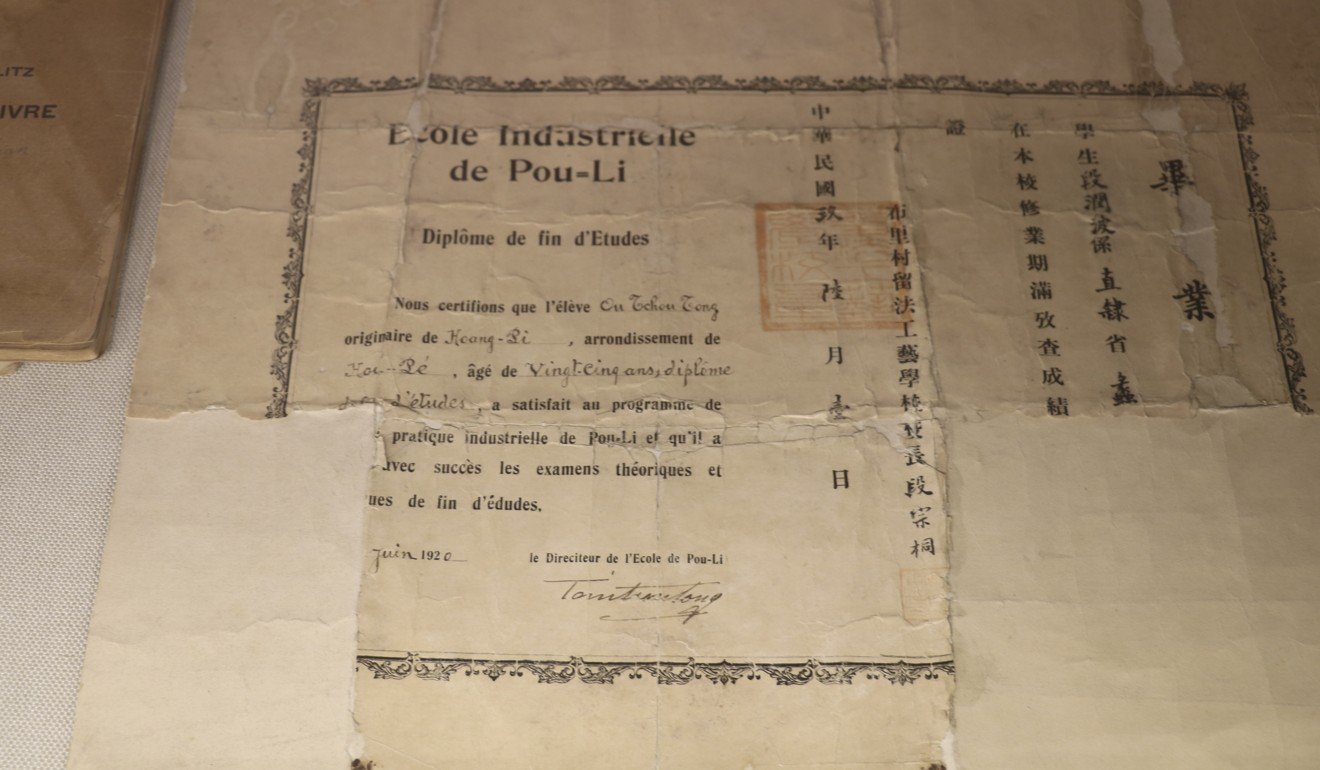 LITZ
IVRE
Ecole Industrielle
de Pou-Li
Diplôme de fin d'Etudes
Nous certifions que l'élève Ou Tchou Tong
originaire de Hoang-Pi , arrondissement de
Hou-Pé , âgé de Vingt-cinq ans, diplôme
d'études , a satisfait au programme de
pratique industrielle de Pou-Li et qu'il a
avec succès les examens théoriques et
ues de fin d'édudes,
Juin 1920 le Direciteur de l'Ecole de Pou-Li
畢業
學生段潤波係直隸省蠡
在本校修業期滿攷查成績
證
布里村留法工藝學校校長段宗桐
中華民國玖年陸月壹日